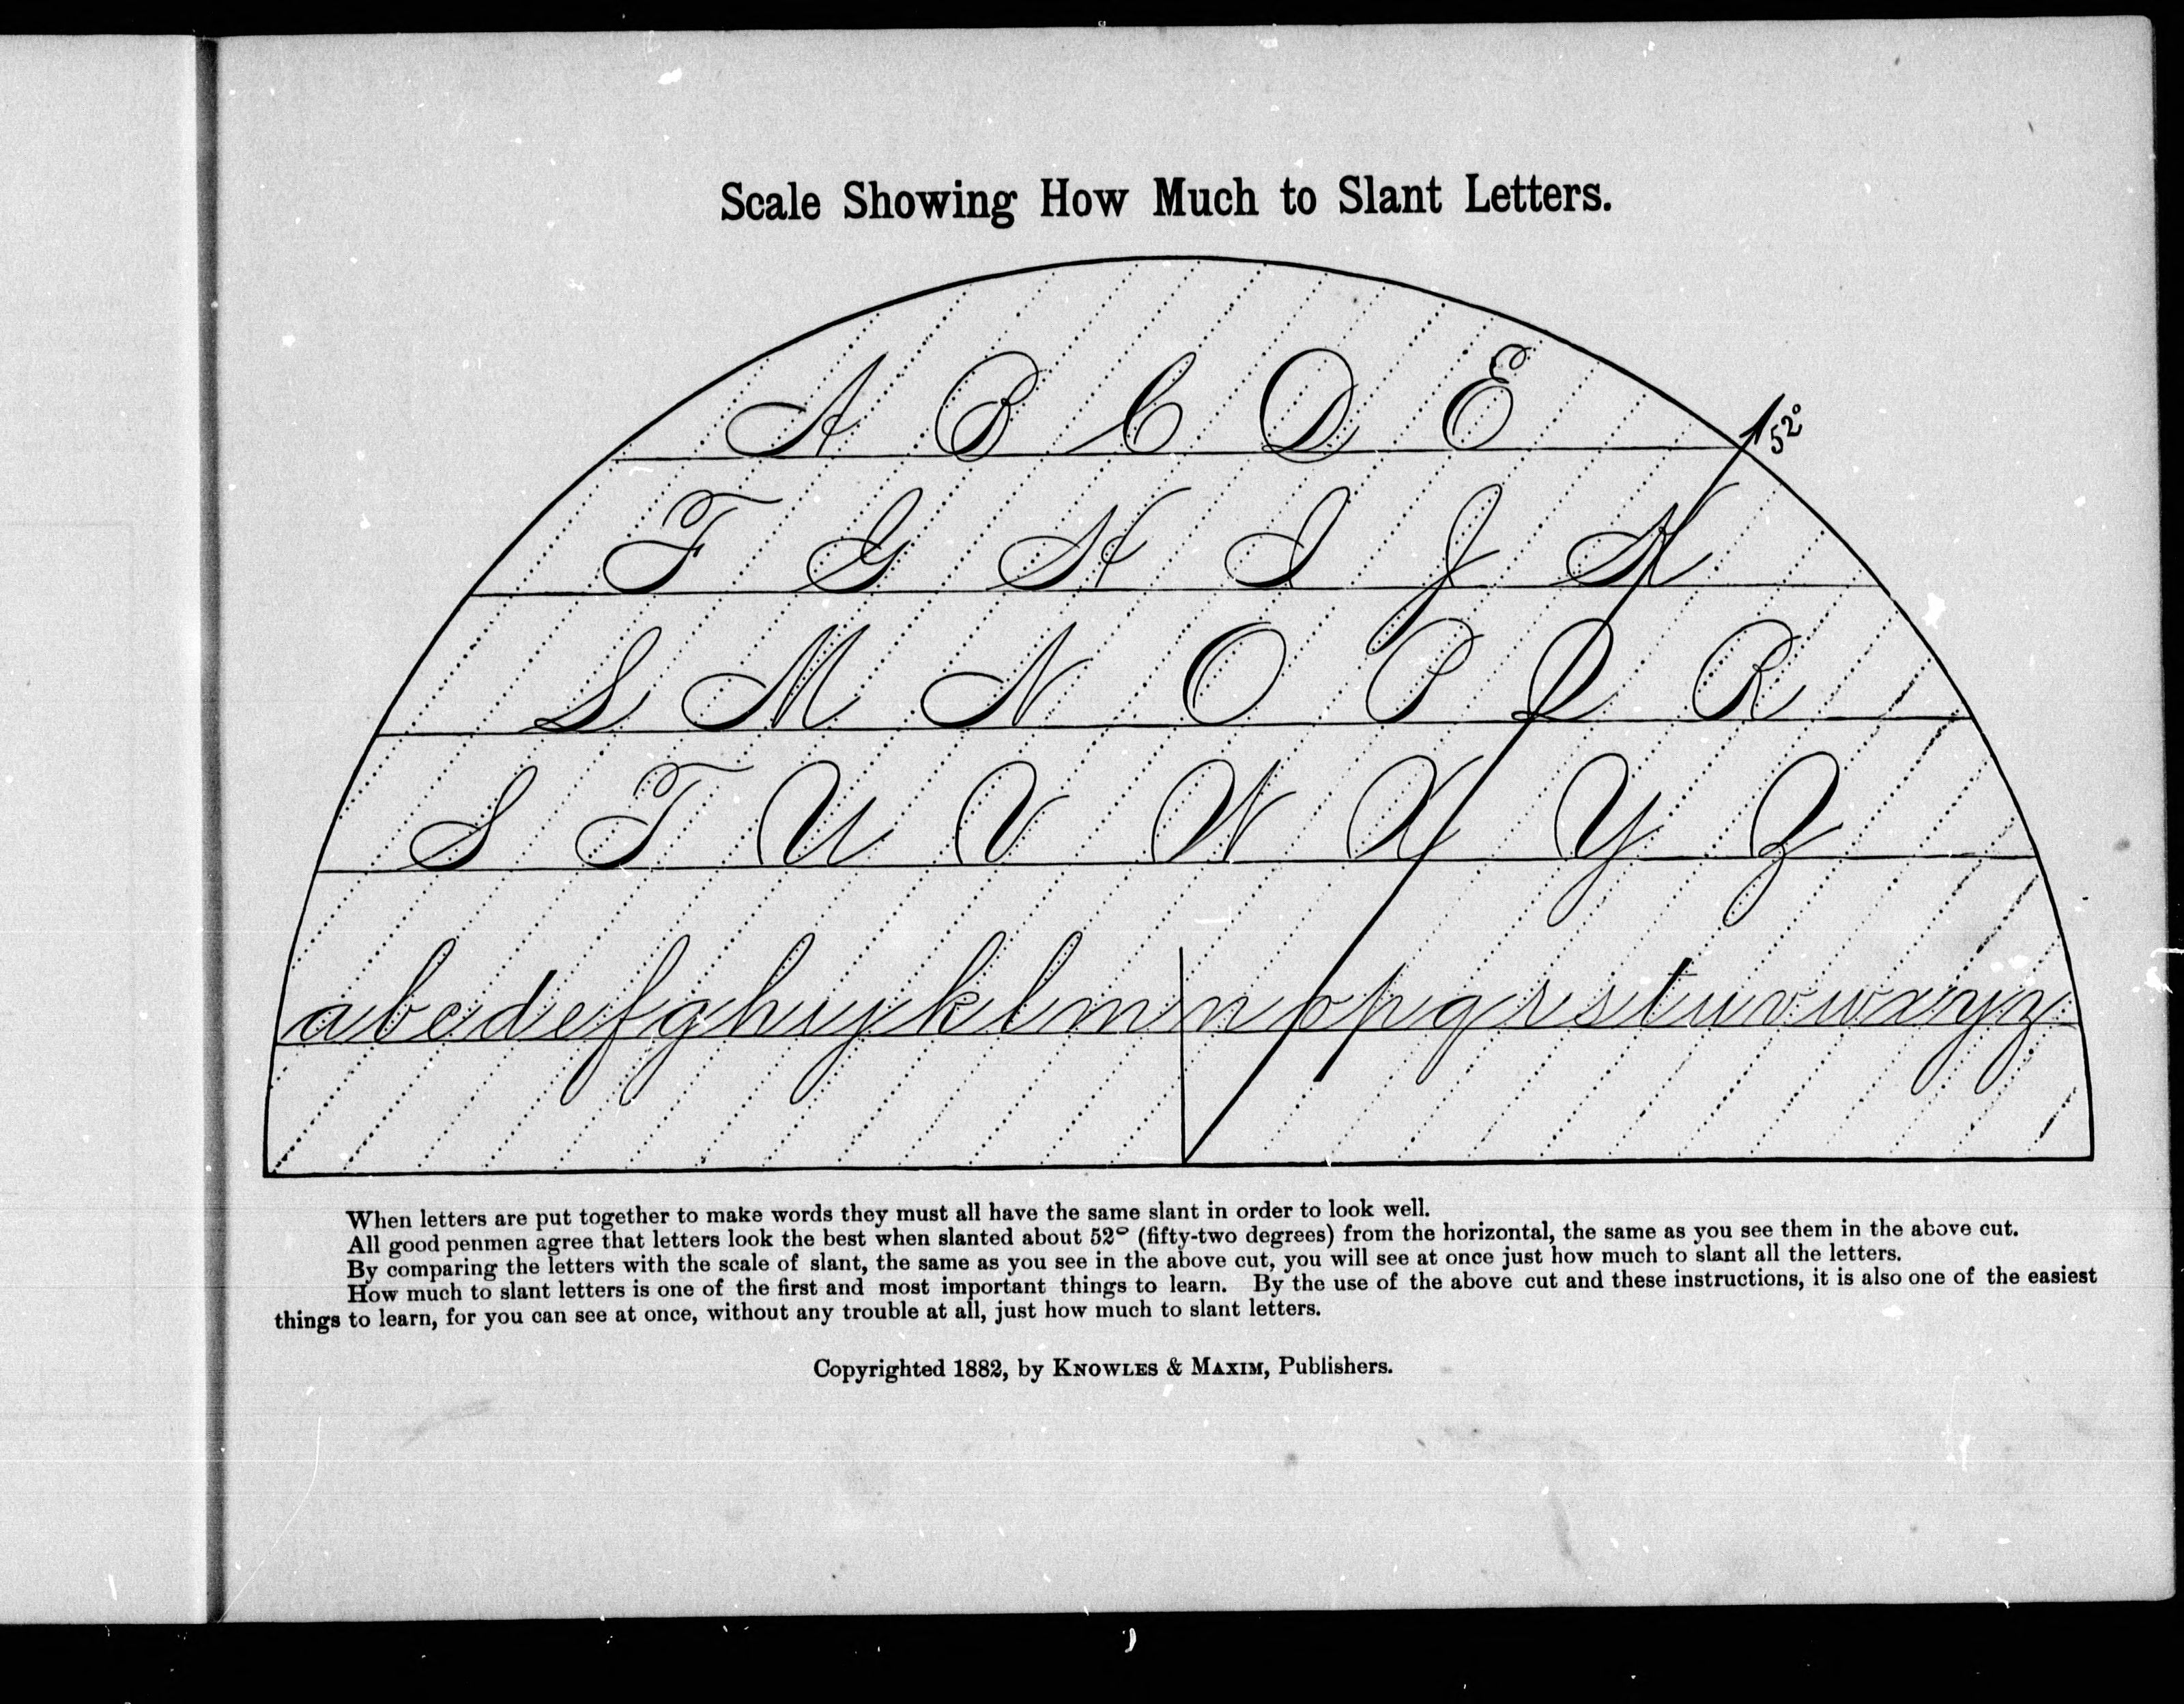 Scale Showing How Much to Slant Letters.
A B C D E
52°
F G H I J K
L M N O P Q R
S T U V W X Y Z
abcdefghijklmnopqrstuvwxyz
When letters are put together to make words they must all have the same slant in order to look well.
All good penmen agree that letters look the best when slanted about 52° (fifty-two degrees) from the horizontal, the same as you see them in the above cut.
By comparing the letters with the scale of slant, the same as you see in the above cut, you will see at once just how much to slant all the letters.
How much to slant letters is one of the first and most important things to learn. By the use of the above cut and these instructions, it is also one of the easiest
things to learn, for you can see at once, without any trouble at all, just how much to slant letters.
Copyrighted 1882, by KNOWLES & MAXIM, Publishers.